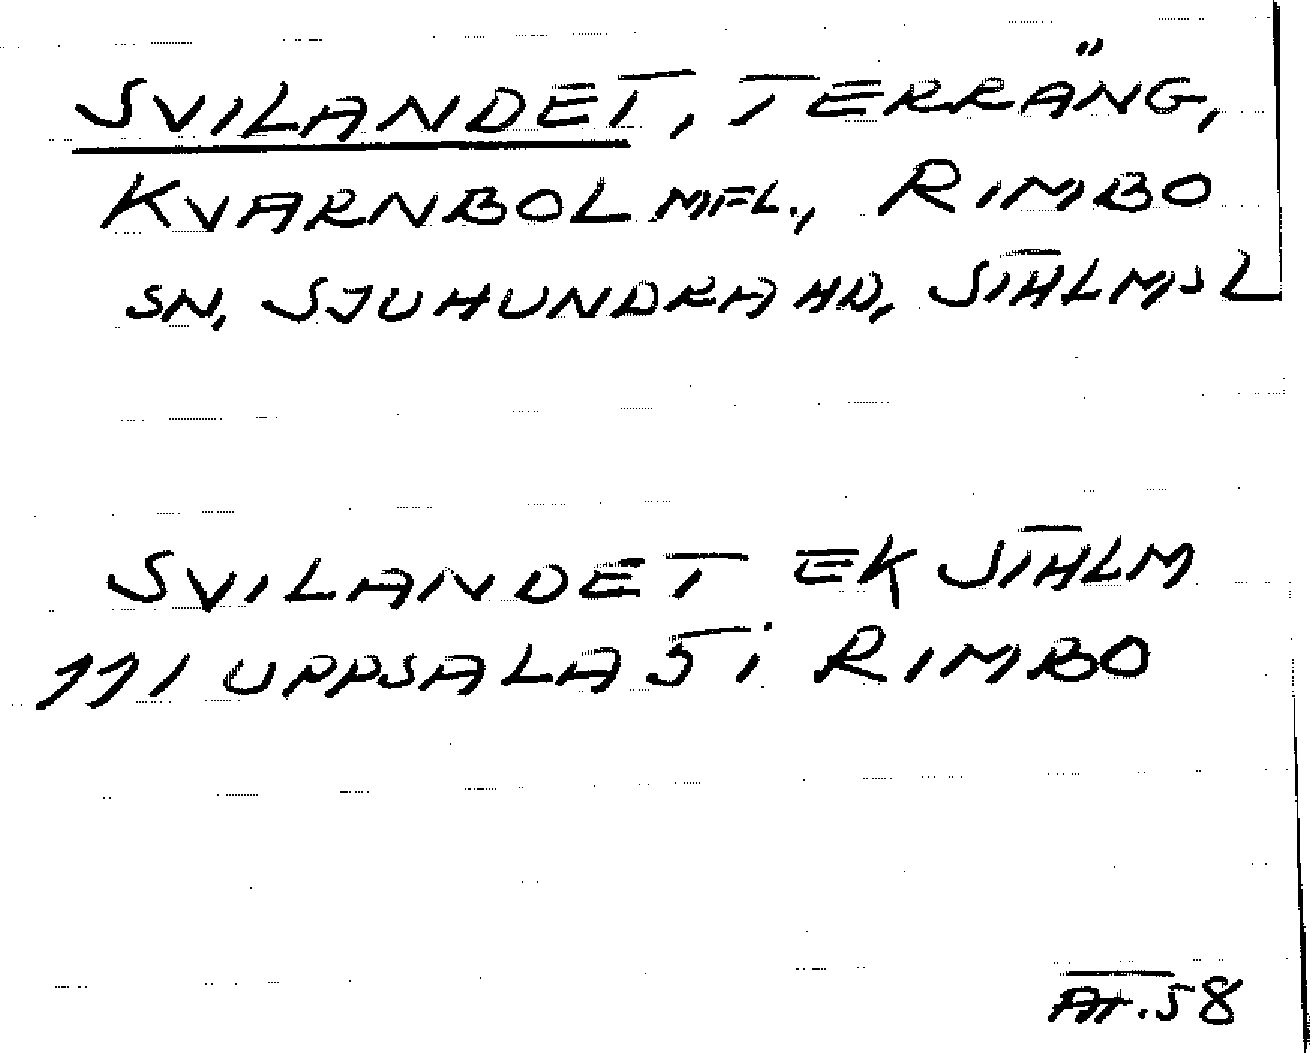 SVILANDET, TERRÄNG,
KVARNBOL MFL., RIMBO
SN, SJUHUNDRA HD, STHLMS L
SVILANDET EK STHLM
111 UPPSALA 5 i RIMBO
AT. 58